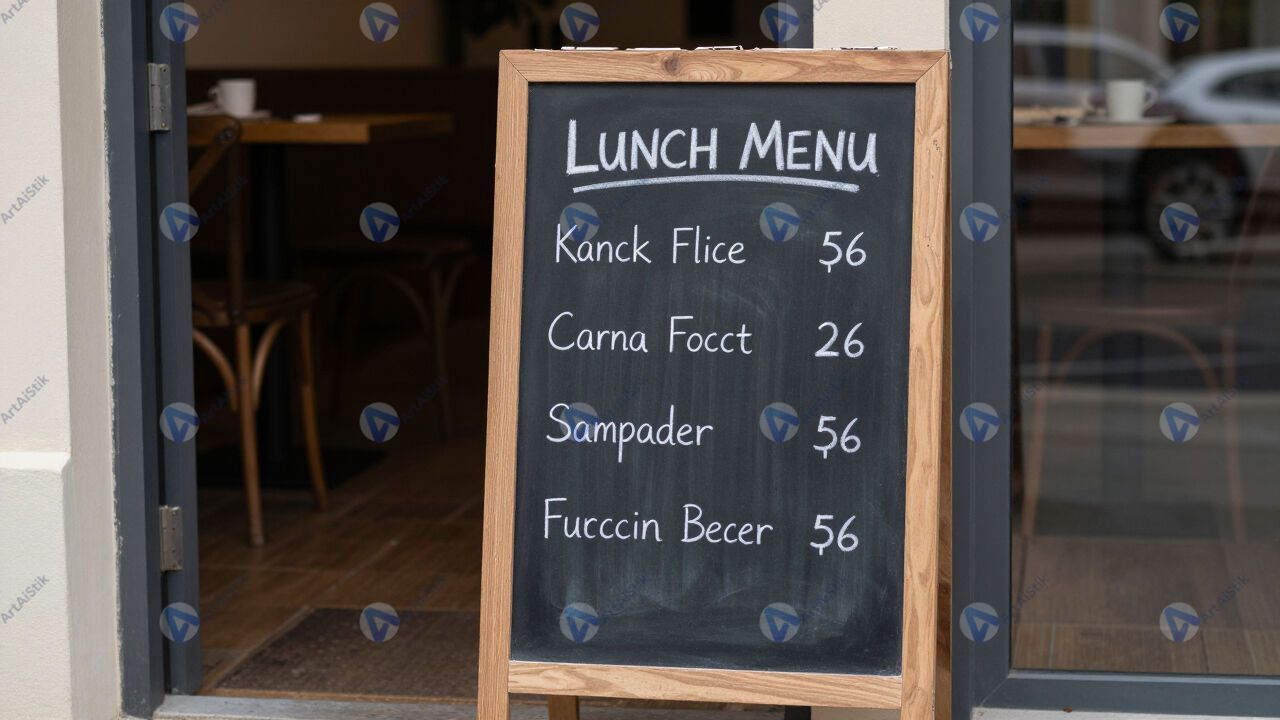 LUNCH MENU
Kanck Flice 56
Carna Focct 26
Sampader 56
Fucccin Becer 56
ArtAiStik